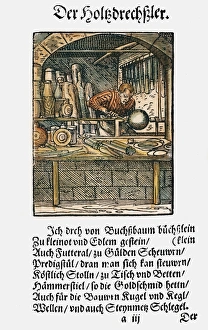 Der Holtzdrechßler.
Ich dreh von Buchßbaum büchßlein
(klein
Zu kleinot und Edlem gestein /
Auch Futteral / zu Gülden Scheuwrn /
Predigstül / dran man sich kan steuwrn /
Köstlich Stolln / zu Tisch und Betten /
Hämmerstiel / so die Goldschmid hetten
Auch für die Bauwrn Kugel und Kegl /
Wellen / und auch Steynmetz Schlegel.
a iij
Der